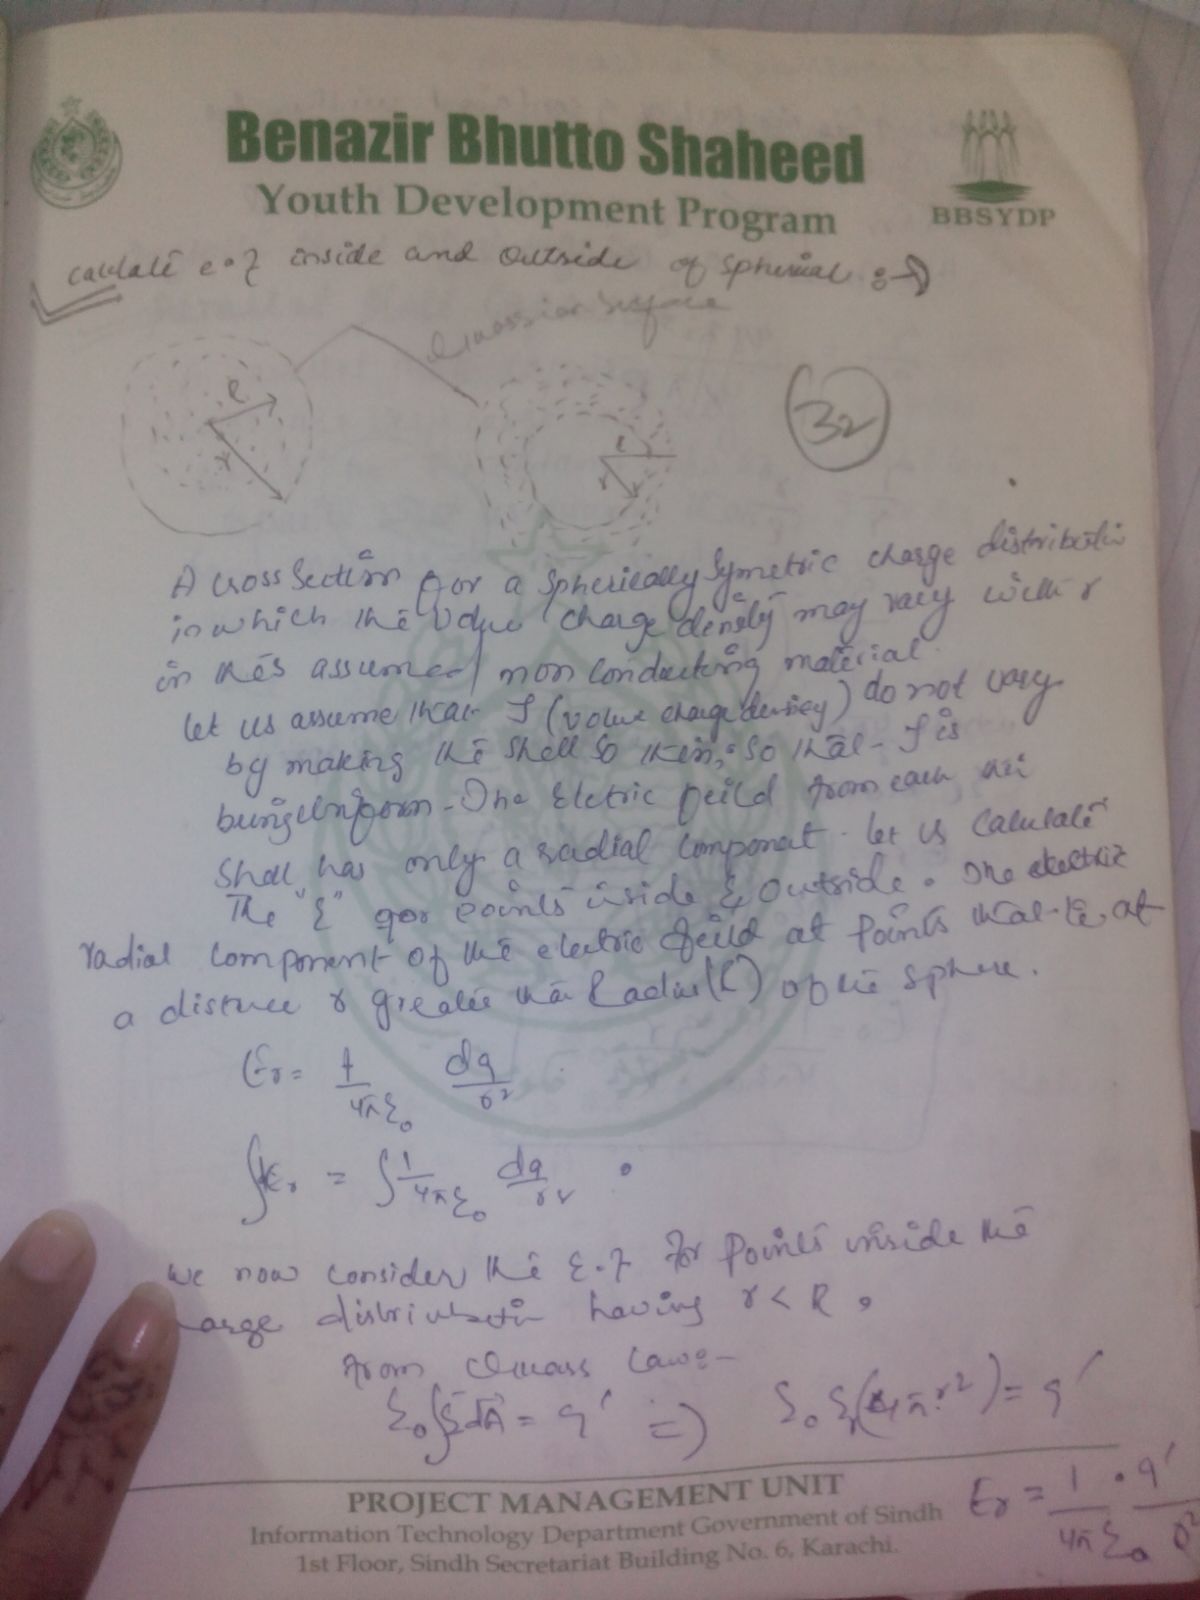 Benazir Bhutto Shaheed
Youth Development Program
BBSYDP
calculate e.f inside and outside of spherical :→
Gaussian Surface
R
r
R
r
32
A cross section for a spherically symetric charge distribution
in which the volue charge density may vary with r
in this assumed non conducting material.
let us assume that ρ (volue charge density) do not vary
by making the shell so thin, so that ρ is
being uniform - The Eletric feild from each thin
Shell has only a radial componat. let us calculate
The "ε" for points inside & outside. The electric
radial component of the electric feild at points that is at
a distnce r greater than Radius (R) of the sphere.
Er = 1/4πε0 dq/r2
∫Er = ∫ 1/4πε0 dq/r2 .
we now consider the ε.f for points inside the
arge distribution having r < R .
from Guass law:-
ε0∫ε dA = q' => ε0 ε(4πr2) = q'
Er = 1/4πε0 . q'/
PROJECT MANAGEMENT UNIT
Information Technology Department Government of Sindh
1st Floor, Sindh Secretariat Building No. 6, Karachi.